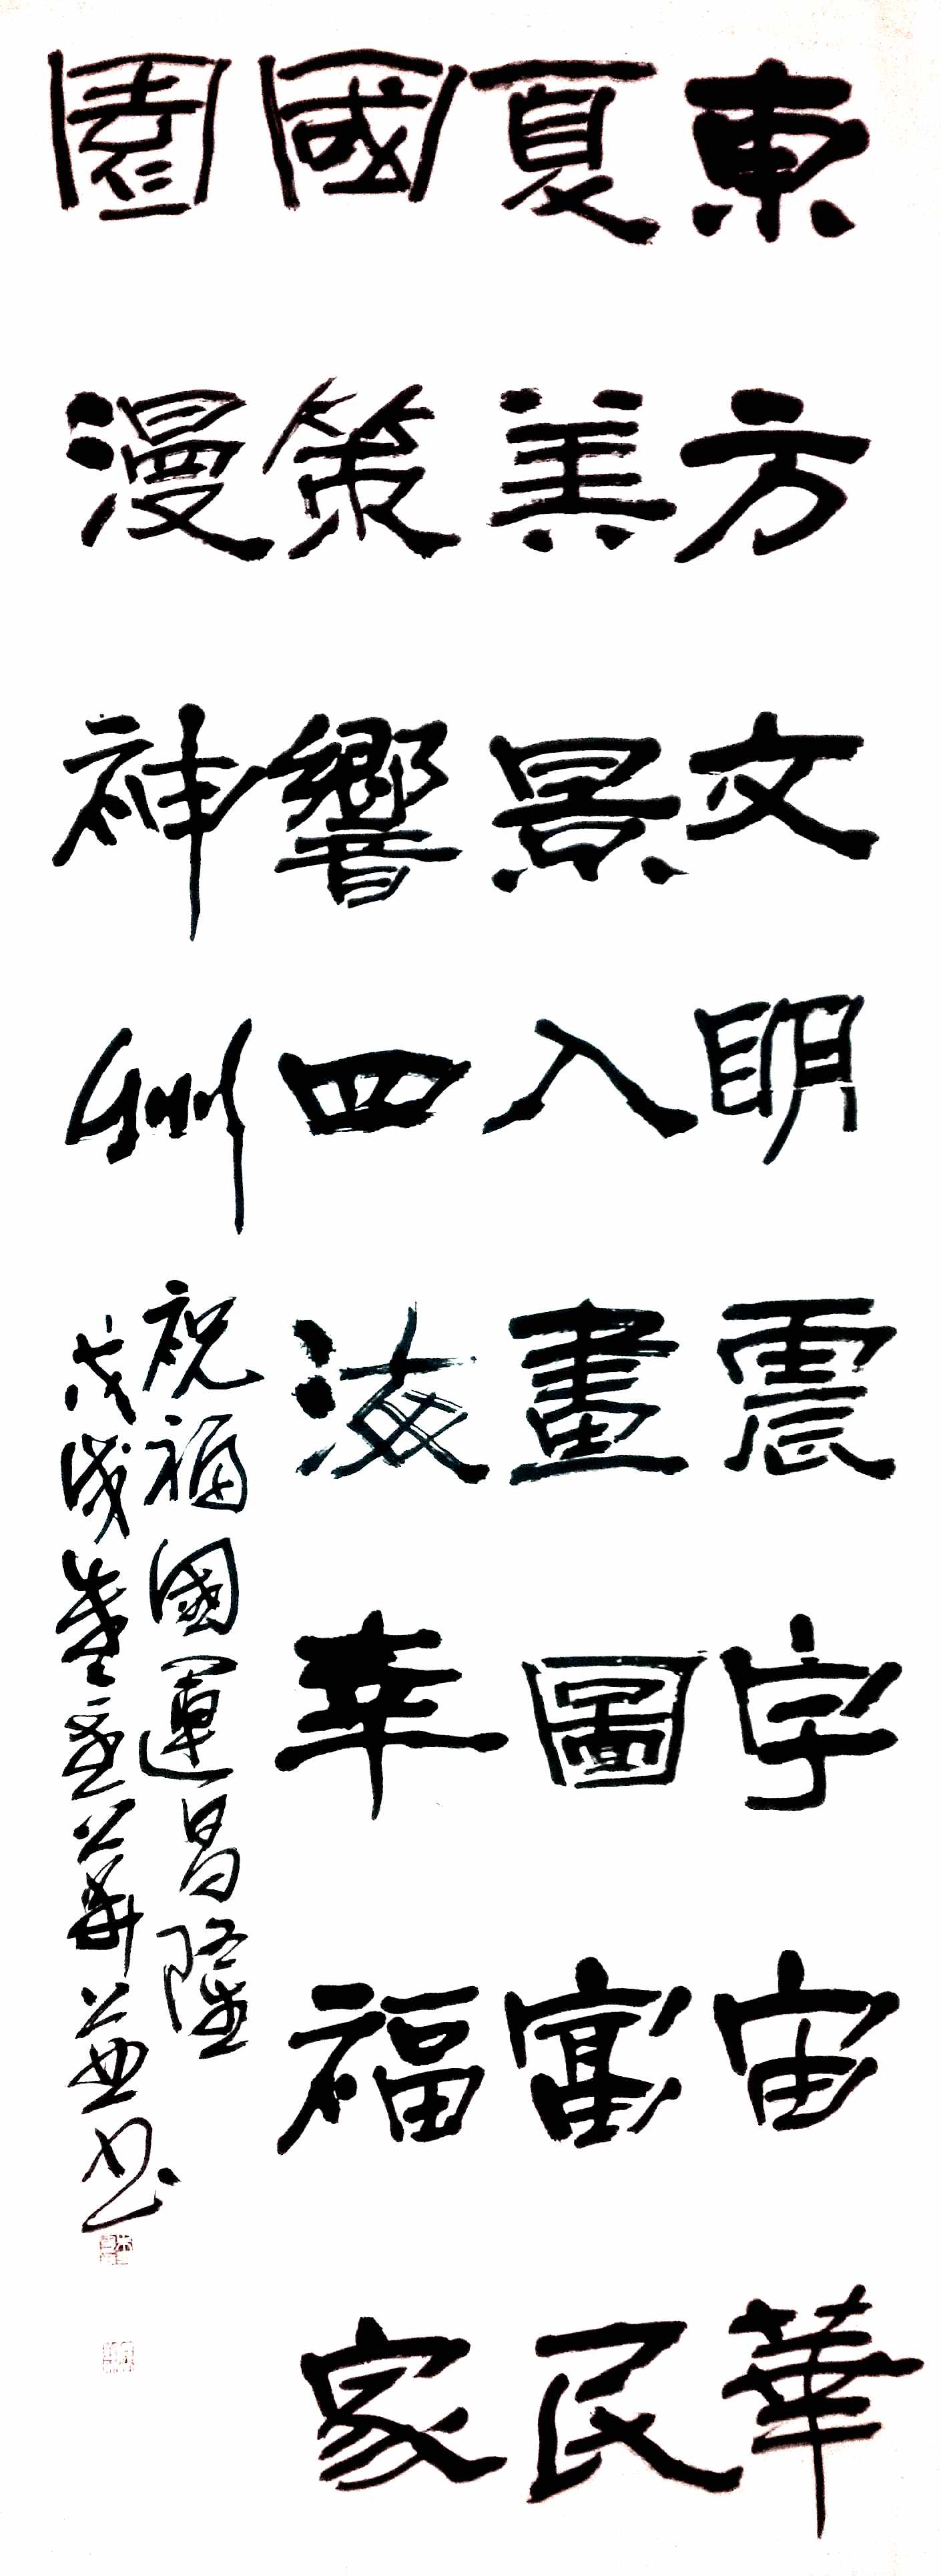 東方文明震宇宙華
夏美景入畫圖富民
國策響四海幸福家
園漫神州
祝福國運昌隆
戊戌书